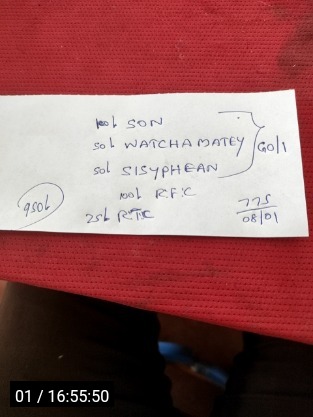 100L SON
50L WATCHAMATEY
50L SISYPHEAN
GO/1
100L RFC
25L
950L
775
08/01
01 / 16:55:50